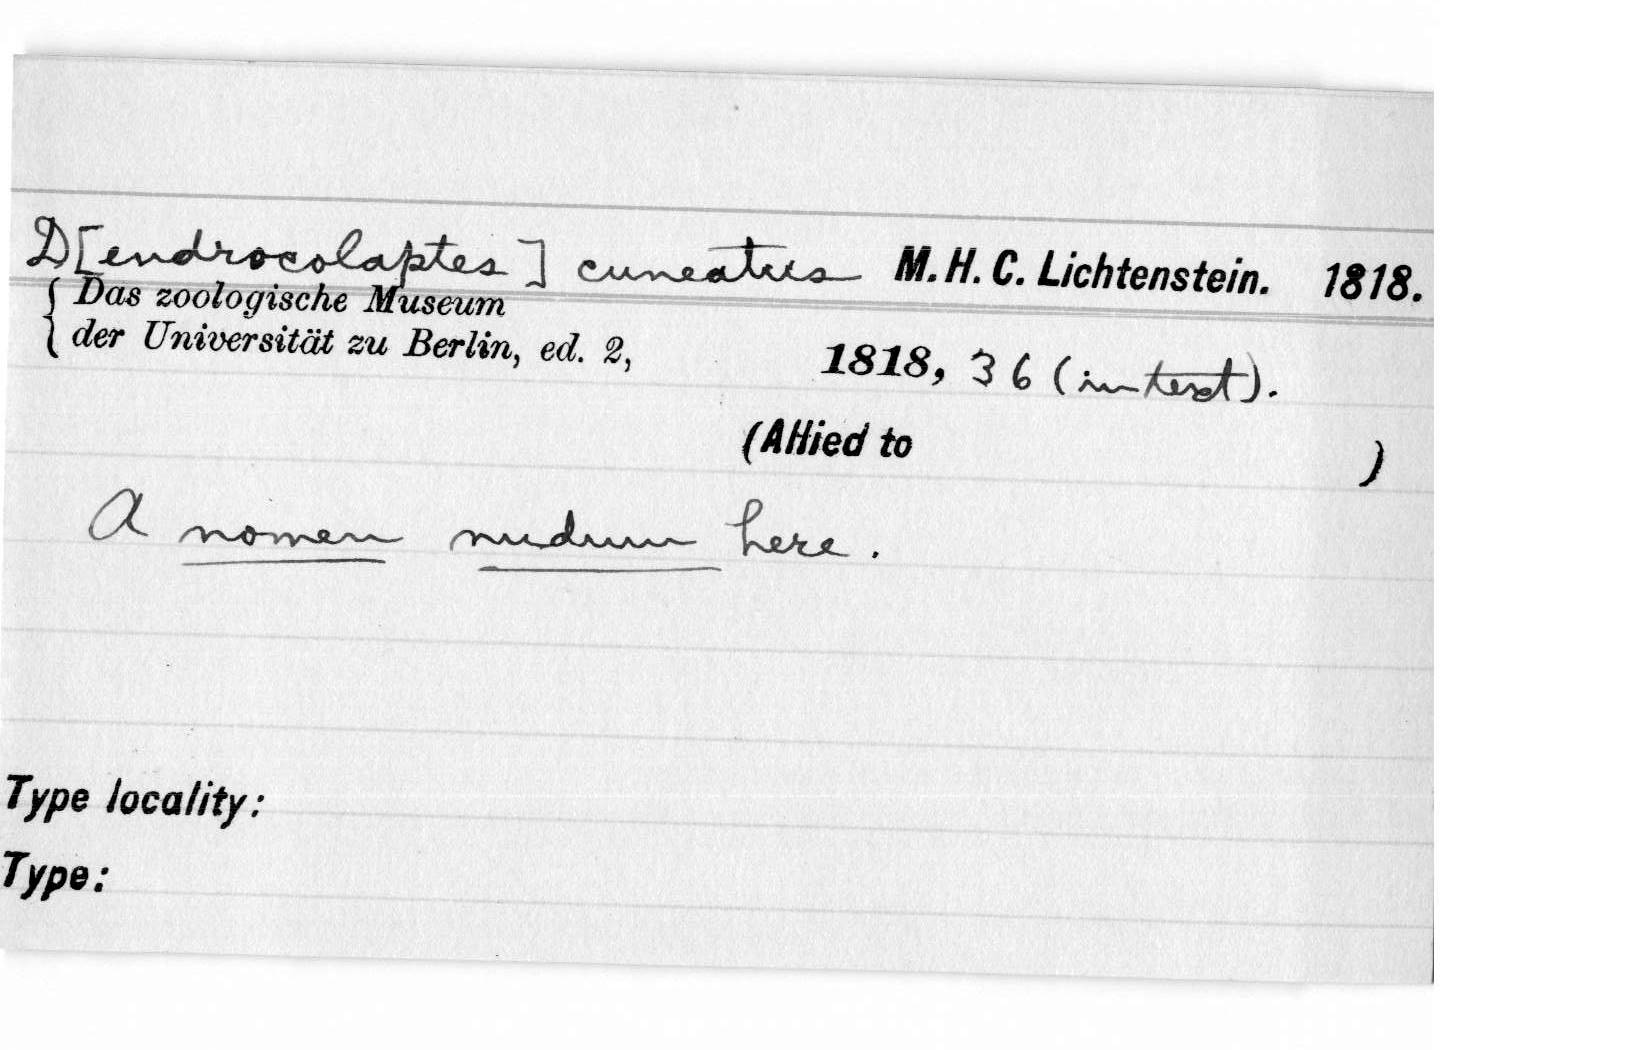 D[endrocolaptes] cuneatus M. H. C. Lichtenstein. 1818.
{ Das zoologische Museum
{ der Universität zu Berlin, ed. 2, 1818, 36 (in text).
(Allied to )
A nomen nudum here.
Type locality:
Type: